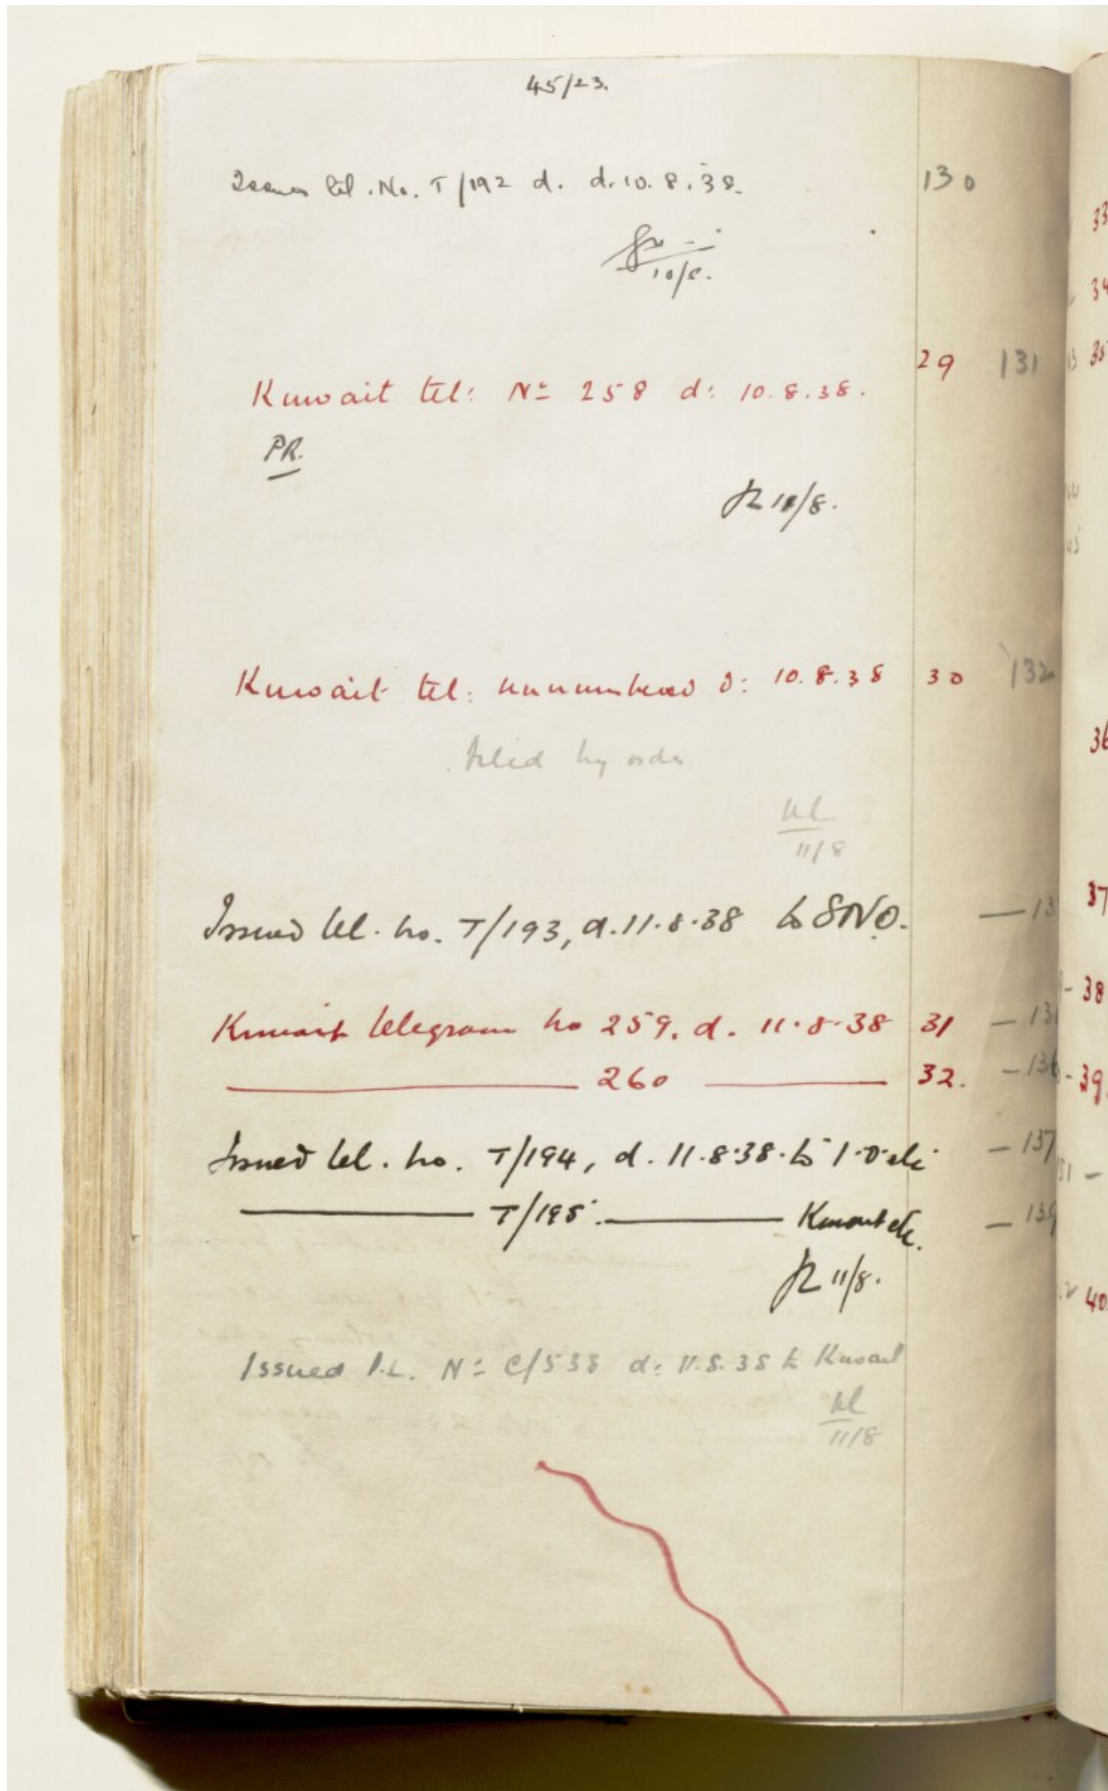 45/23.
Issues tel. No. T/192 d. d. 10.8.38. 130
10/8.
29 131
Kuwait tel: Nº 258 d: 10.8.38.
PR.
11/8.
Kuwait tel: unnumbered d: 10.8.38 30 132
by order
11/8
Issued tel. no. T/193, d. 11.8.38 to SNO.
Kuwait telegram no 259. d. 11.8.38 31
260 32.
Issued tel. no. T/194, d. 11.8.38. to I.O. etc — 137
T/195. Kuwait etc. — 139
11/8.
Issued P.L. Nº C/538 d: 11.8.38 to Kuwait
11/8
33
34
35
36
37
38
39.
40.